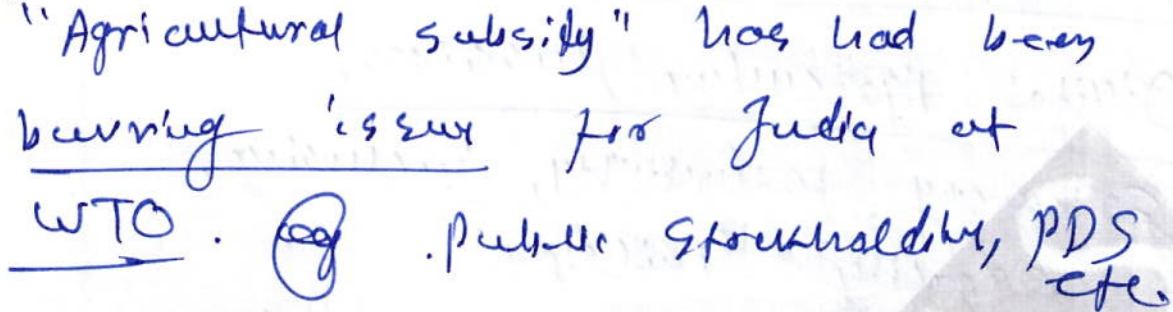 "Agricultural subsidy" has had been
burning issue for India at
WTO. eg. Public Stockholding, PDS
etc.